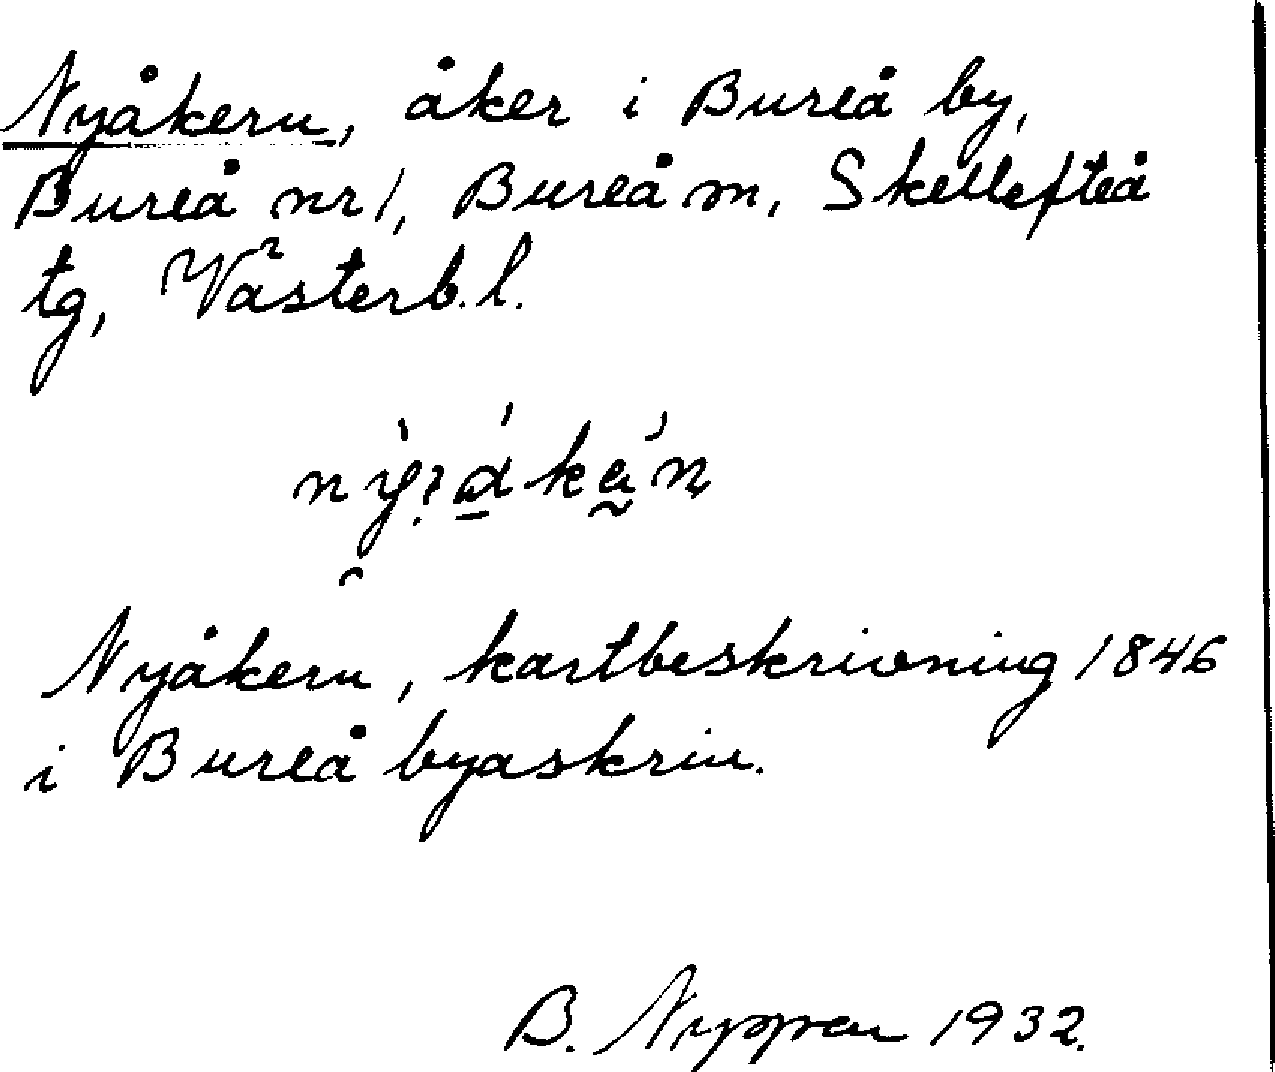 Nyåkern, åker i Bureå by,
Bureå nr 1, Bureå m, Skellefteå
tg, Västerb. l.
Nyåkern, kartbeskrivning 1846
i Bureå byaskrin.
B. Nyppen 1932.